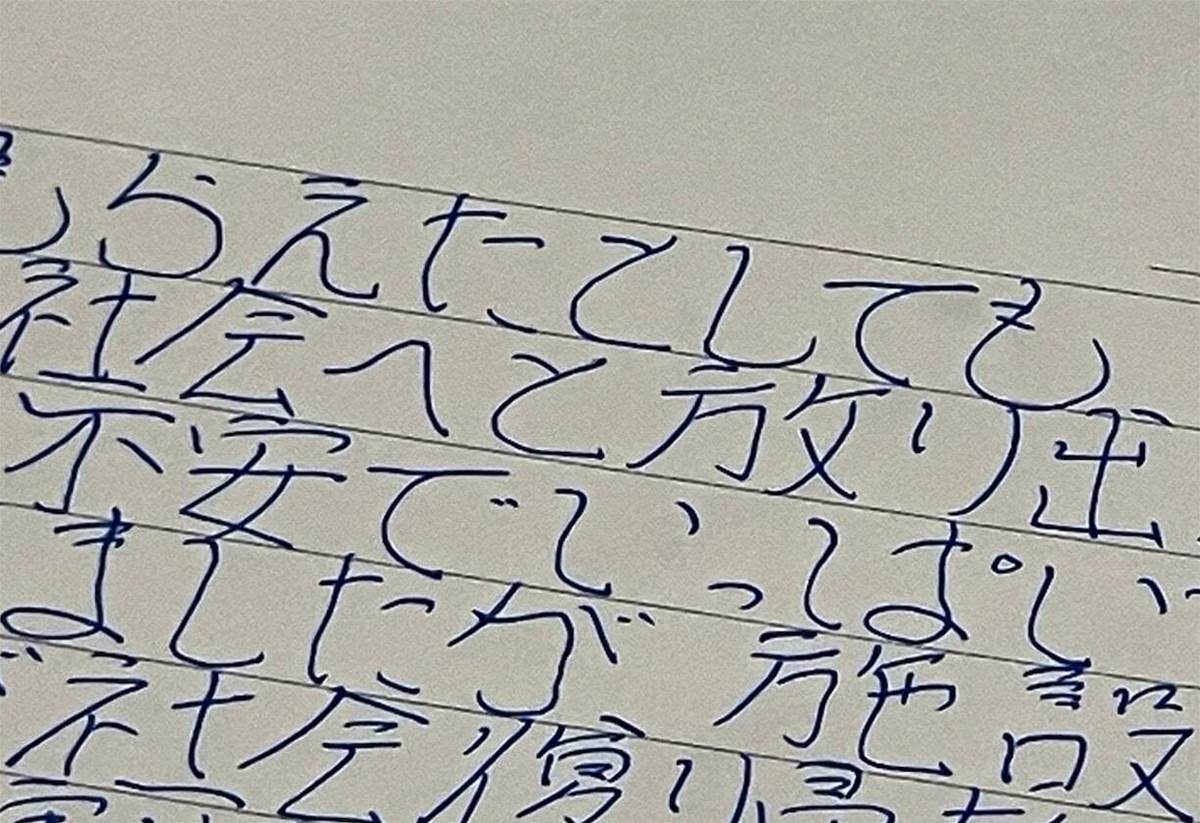 らえたとしても
社会へと放り出
不安でいっぱい
ましたが 施設
社会復帰